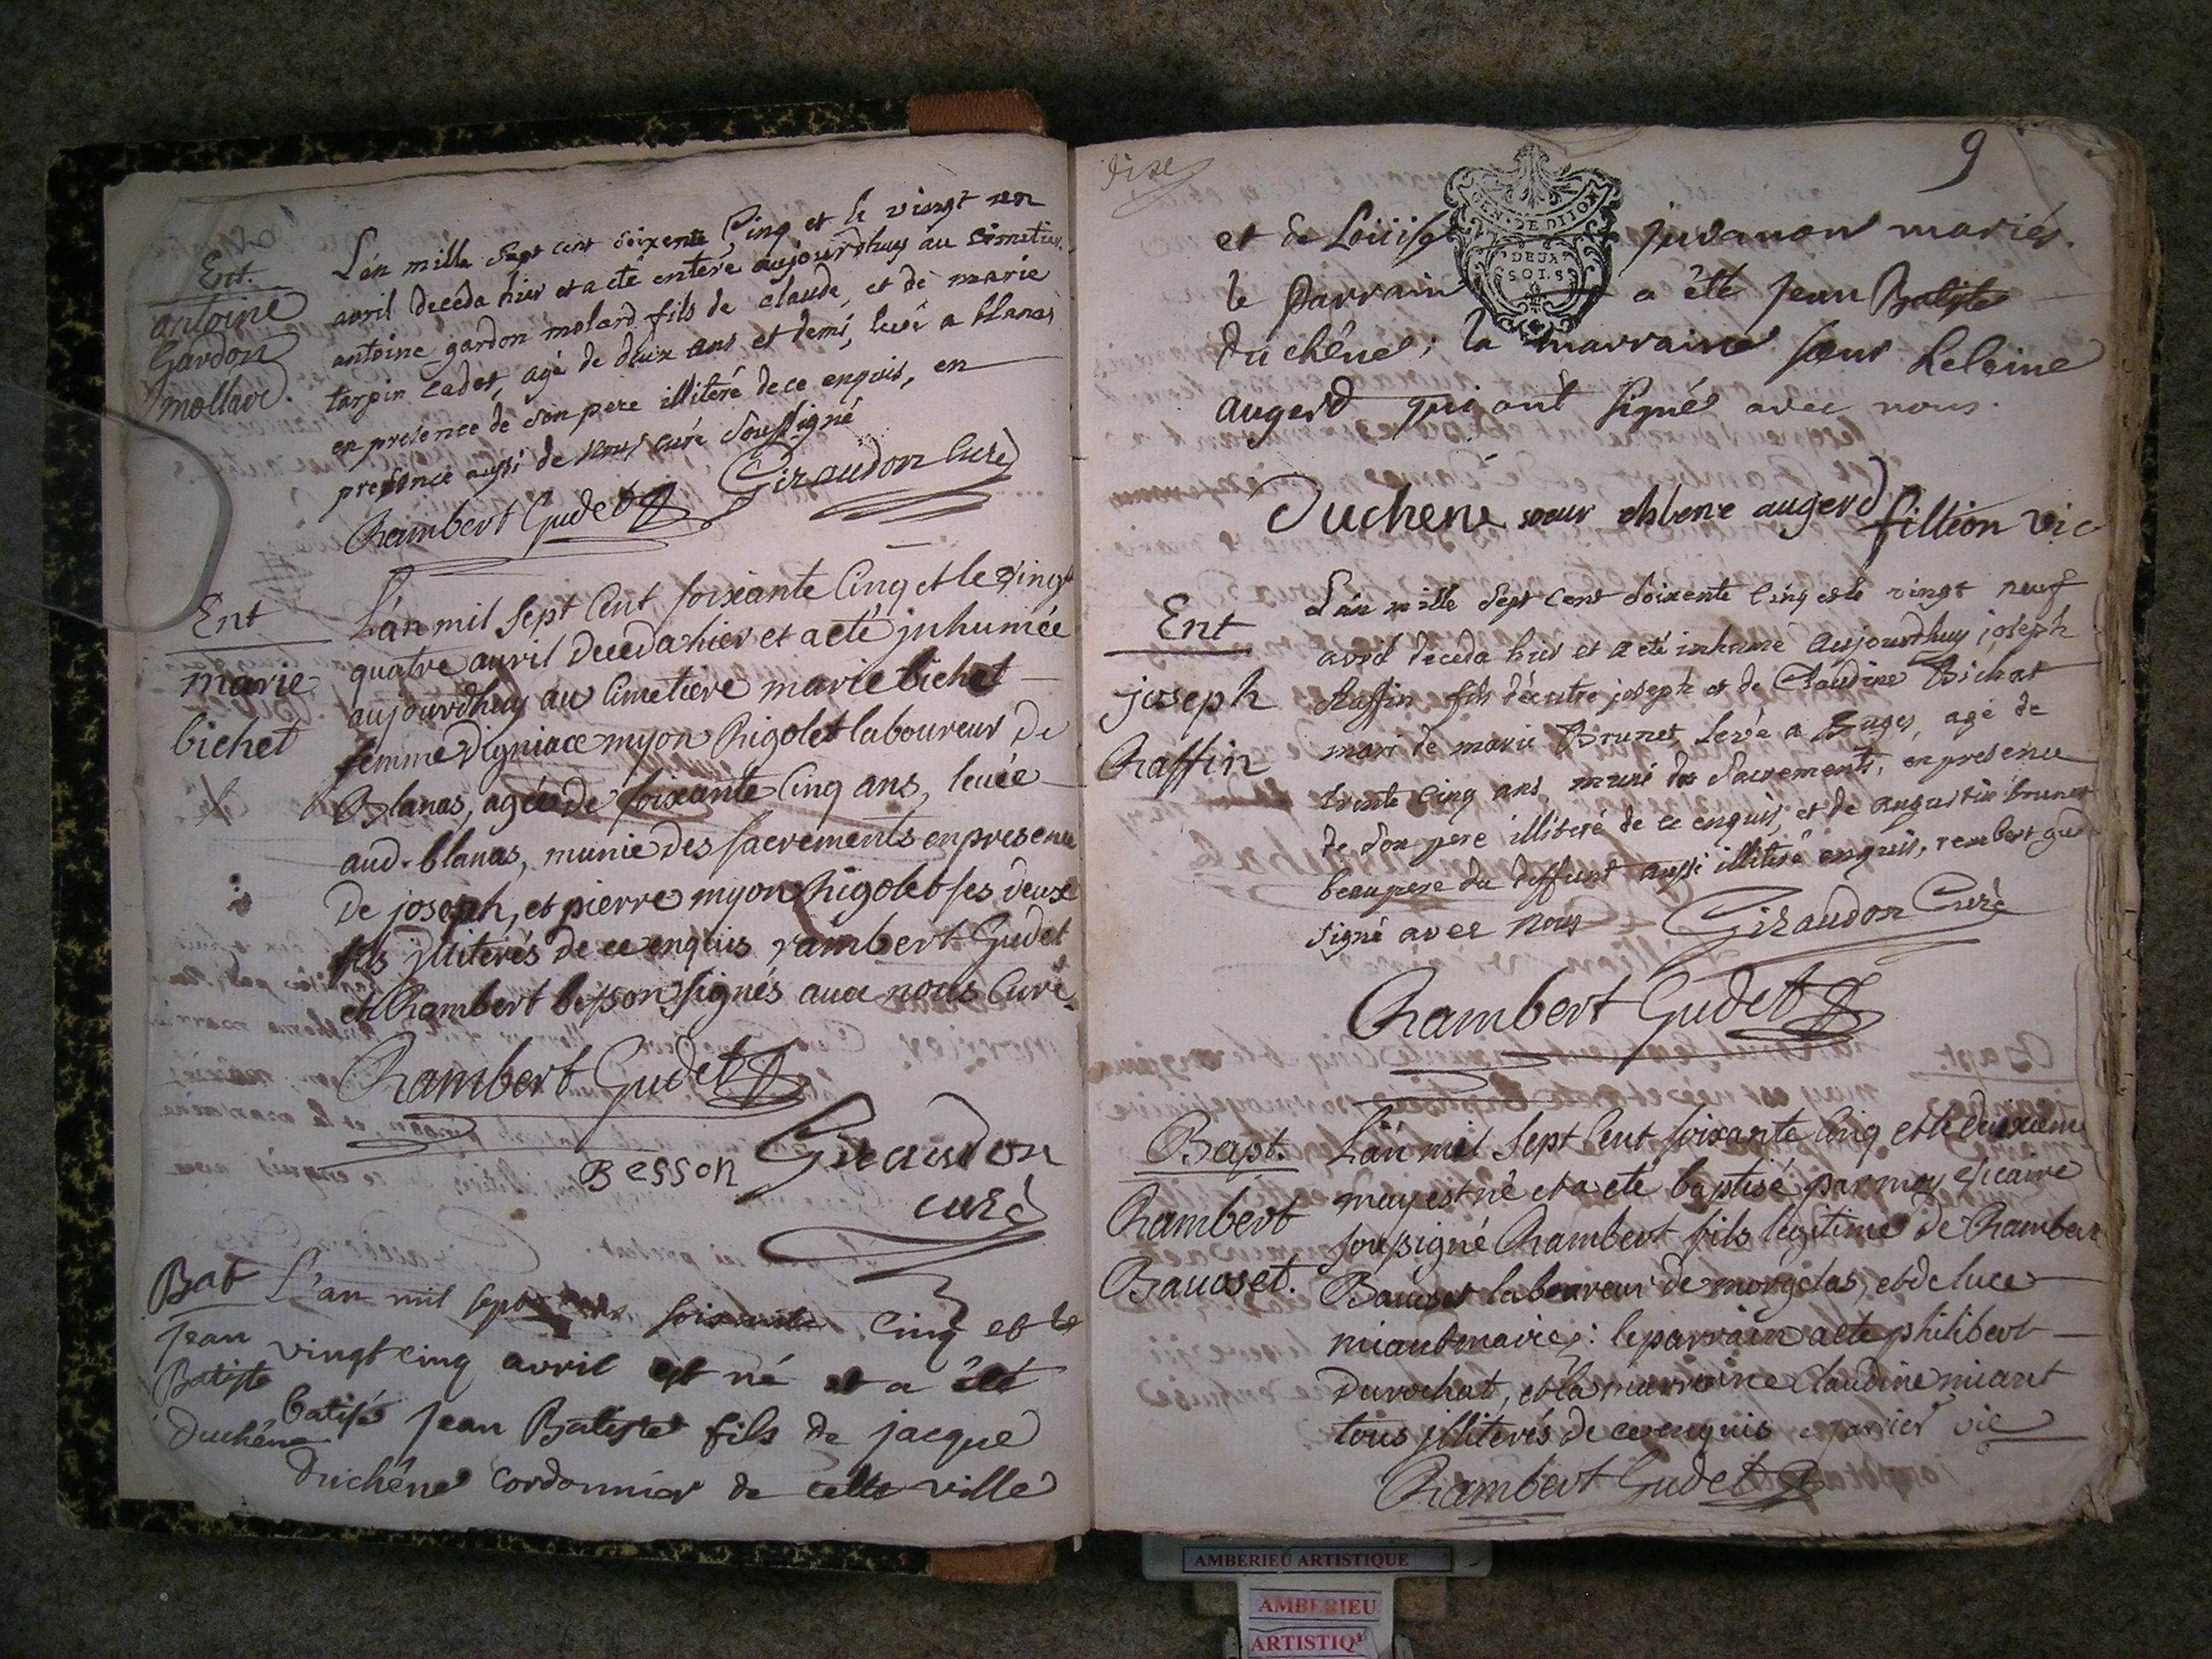 Ent.
antoine
Gardon
mollard.
L'an mille Sept cent Soixente Cinq et le vingt un
avril deceda hier et a eté enteré aujourdhuy au Cimetier
antoine gardon molard fils de claude et de marie
tarpin cadet, agé de deux ans et demi, levé a blanas
en presence de Son pere illiteré de ce enquis, en
presence aussi de nous curé Soussigné
Rambert Gudet Giraudon Curé
Ent
marie
bichet
L'an mil Sept Cent soixante Cinq et le vingt
quatre avril deceda hier et a eté inhumée
aujourdhuy au Cimetiere marie bichet
femme d'igniace myon Rigolet laboureur de
Blanas, agée de soixante Cinq ans, levée
aud. blanas, munie des sacrements en presence
de joseph, et pierre myon Rigolet ses deux
fils illiterés de ce enquis rambert Gudet
et Rambert besson signés avec nous Curé.
Rambert Gudet
Besson Giraudon
curé
Bat
Jean
Batiste
Duchêne
L'an mil sept cent soixante Cinq et le
vingt cinq avril est né et a été
batisé Jean Batiste fils de jacque
Duchêne Cordonnier de cette ville
9
GEN. DE DIJON
DEUX
SOLS
et de Loüise juvanon mariés.
le parrain a été Jean Batiste
Duchêne; la marraine soeur heleine
augerd qui ont signés avec nous.
Duchene soeur helene augerd fillion vic
Ent
joseph
Raffin
L'an mille Sept cent Soixente Cinq et le vingt neuf
avril deceda hier et a eté inhumé aujourdhuy joseph
Raffin fils d'autre joseph et de Claudine Bichat
mari de marie Brunet, levé a , agé de
trente cinq ans muni des Sacrements, en presence
de Son pere illiteré de ce enquis, et de augustin brunet
beaupere du deffunt aussi illiteré enquis, rembert gudet
signé avec nous Giraudon Curé
Rambert Gudet
Bapt.
Rambert
Baucset.
L'an mil Sept Cent soixante Cinq et le deuxieme
may est né et a eté baptisé par moy vicaire
soussigné Rambert fils legitime de Rambert
Baucset laboureur de morgelas, et de luce
miant mariés: le parrain a eté philibert
Durochat, et la marraine Claudine miant
tous illiterés de ce enquis vic
Rambert Gudet
AMBERIEU ARTISTIQUE
AMBERIEU
ARTISTIQ